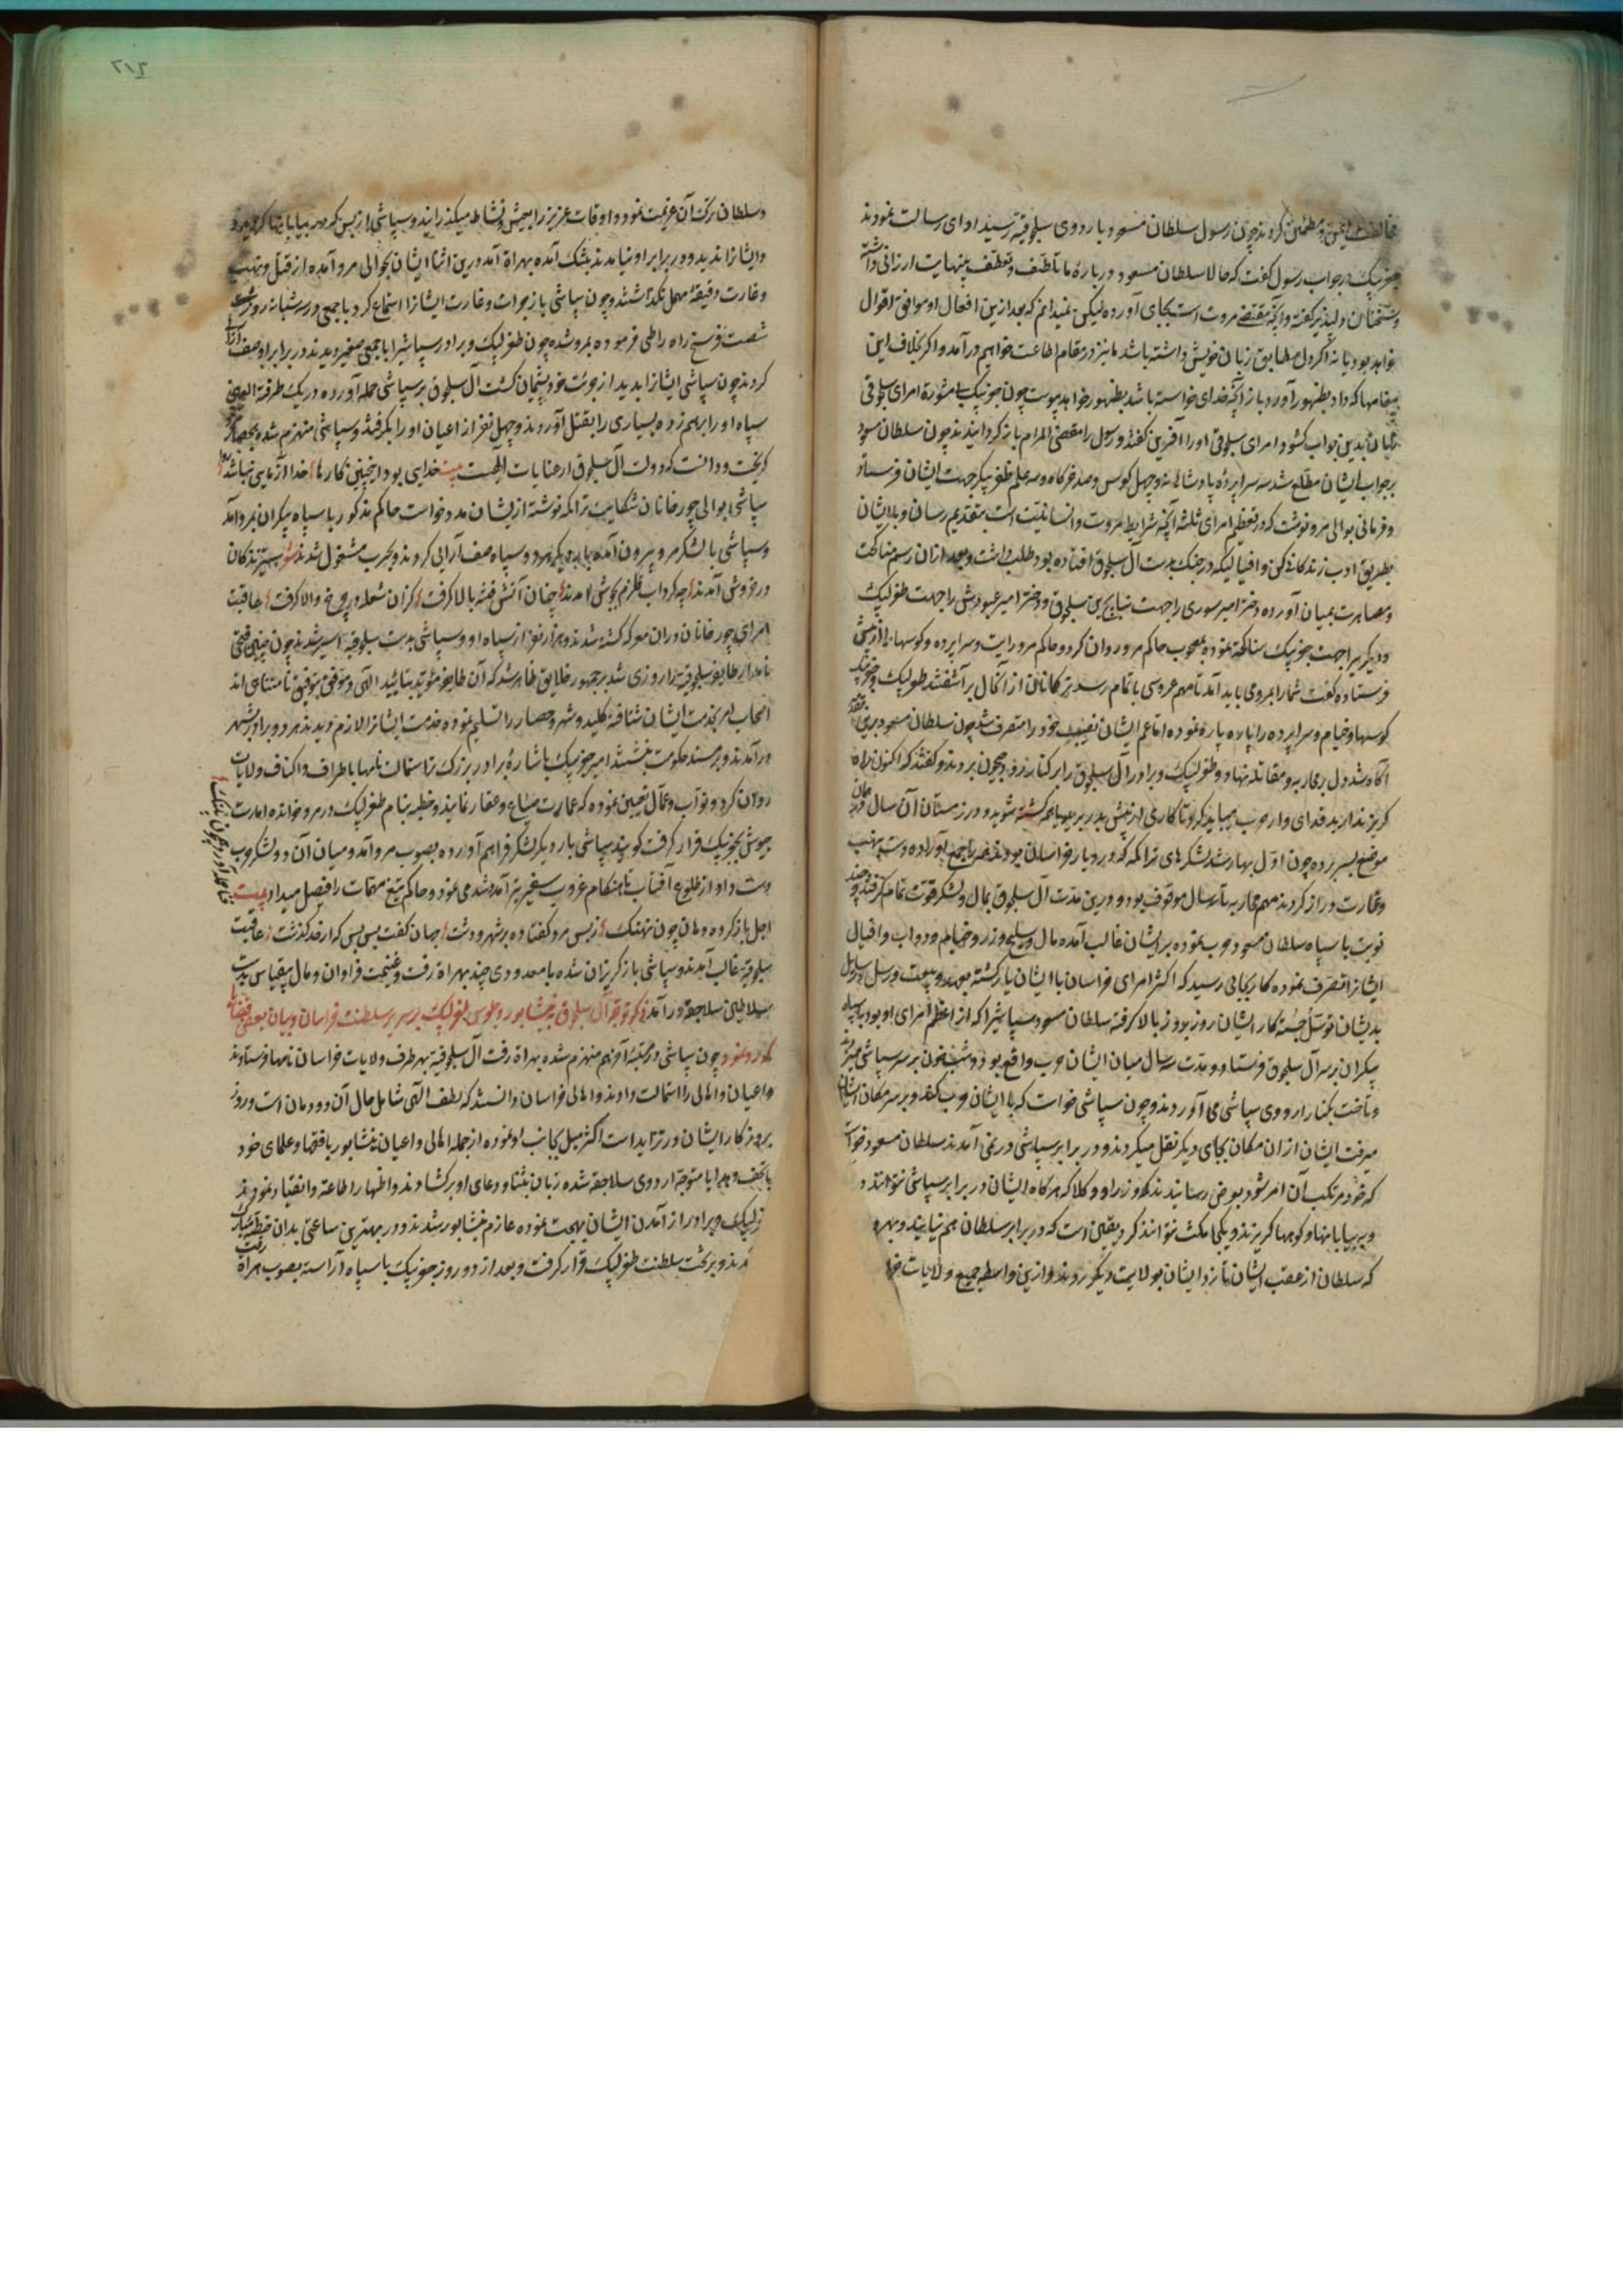 چون رسول سلطان مسعود باردوی سلجوقیه رسید ادای رسالت نمودند
جغربیک در جواب رسول کفت که حالا سلطان مسعود درباره ما تلطف و تعطف بینهایت ارزانی داشته
و سخنان دلپذیر کفته و آنچه مقتضی مروت است بجای آورده لیکن نمیدانم که بعد ازین افعال او موافق اقوال
خواهد بود یا نه اکر دل مطابق زبان خویش داشته باشد ما نیز در مقام اطاعت خواهیم درآمد و اکر خلاف این
بظهور آورد باز آنچه خدای خواسته باشد بظهور خواهد پیوست چون جغربیک بمشورة امرای سلجوقی
زبان بدین جواب کشود امرای سلجوقی او را آفرین کفتند و رسول را مقضی المرام باز کردانیدند چون سلطان مسعود
بر جواب ایشان مطلع شد سه سراپرده پادشاهانه و چهل کوس و صد خرکاه و سه علم ظفر پیکر جهت ایشان فرستاد
و فرمانی بوالی مرو نوشت که در تعظیم امرای ثلثه آنچه شرایط مروت و انسانیت است بتقدیم رسان و با ایشان
بطریق ادب زندکانی کن و افیالیکه در جنک بدست آل سلجوق افتاده بود طلب داشت و بعد از آن رسم مناکحت
و مصاهرت بمیان آورده دختر امیر سوری را جهت سلجوق و دختر امیر عبدوش را جهت طغرلبیک
و دیکریرا جهت جغربیک مناکحه نموده مصحوب حاکم مرو روان کرد و حاکم مرو رایت و سراپرده و کوسها را از پیش
فرستاده کفت شما را بمرو می باید آمد تا مهم عروسی باتمام رسد ترکانان از آن حال برآشفتند طغرلبیک و جغربیک
کوسها و خیام و سراپرده را پاره پاره نموده
آکاه شد دل بر محاربه و مقاتله نهاد و طغرلبیک و برادر آل سلجوق را بر کنار رود جیحون بردند و کفتند که اکنون راه
کریز ندارید
موضع بسر برده چون اول بهار شد لشکرهای تراکمه که در دیار خراسان بودند
و غارت دراز کردند مهم محاربه تا سه سال موقوف بود و درین مدت آل سلجوق بمال و لشکر قوت تمام کرفتند و چند
نوبت با سپاه سلطان مسعود حرب نموده بر ایشان غالب آمده مال و سلیح و زر و خیام و دواب و افیال
ایشانرا تصرف نموده کار بجائی رسید که اکثر امرای خراسان با ایشان یار کشته
بدیشان توسل جسته کار ایشان روز بروز بالا کرفته سلطان مسعود سپاشیرا که از اعظم امرای او بود با سپاه
بیکران بر سر آل سلجوق فرستاد و مدت سه سال میان ایشان حرب واقع بود و شبیخون بر سر سپاشی
و تاخت بکنار اردوی سپاشی می آوردند و چون سپاشی خواست که با ایشان حرب کند و بر سر مکان ایشان
میرفت ایشان از آن مکان بجای دیکر نقل میکردند و در برابر سپاشی در نمی آمدند سلطان مسعود خواست
که خود مرتکب آن امر شود بعرض رسانیدند وزرا و وکلا که هرکاه ایشان در برابر سپاشی نتوانند
و به بیابانها و کوهها کریزند و یکجا مکث نتوانند کرد یقین است که در برابر سلطان هم نیایند و بهره
که سلطان از عقب ایشان تازد ایشان بولایت دیکر روند و ازین واسطه جمیع ولایات
۲۱۴
و سلطان ترک آن عزیمت نمود و اوقات عزیز را بعیش و نشاط میکذرانید و سپاشی از بس که در بیابانها کردید
و ایشانرا ندید و در برابر او نیامدند بتنک آمده بهراة آمد درین اثنا ایشان بحوالی مرو آمده از قتل و نهب
و غارت دقیقه مهمل نکذاشتند و چون سپاشی باز جرات و غارت ایشانرا استماع کرد با جمعی در سه شبانه روز
شصت فرسخ راه را طی فرموده بمرو شد چون طغرلبیک و برادر سپاشیرا با جمعی صغیر دیدند در برابر او صف
کردند چون سپاشی ایشانرا بدید از جرئت خود پشیمان کشت آل سلجوق بر سپاشی حمله آورده در یک طرفة العین
سپاه او را برهم زده بسیاری را بقتل آوردند و چهل نفر از اعیان او را بکرفتند و سپاشی منهزم شده
کریخت و دانست که دولت آل سلجوق از عنایات الهیست بیت خدایی بود اینچنین کارها خدا آزمایی نباشد
سپاشی بوالی جورخانان شکایت تراکمه نوشته از ایشان مدد خواست حاکم مذکور با سپاه بیکران بمرو آمد
و سپاشی با لشکر مرو بیرون آمده و سپاه صف آرائی کردند و بحرب مشغول شدند
در خروش آمدند چه کرداب قلزم بجوش آمدند چنان آتش فتنه بالا کرفت کزان شعله در چرخ والا کرفت عاقبت
امرای جورخانان در آن معرکه کشته شدند و هزار نفر از سپاه او و سپاشی بدست سلجوقیه اسیر شدند چون چنین فتحی
نامدار طایفه سلجوقیه را روزی شد بر جمهور خلایق ظاهر شد که آن طایفه مؤید بتائید الهی و موفق بتوفیق نامتناهی اند
اصحاب مرو بخدمت ایشان شتافته کلید شهر و حصار را تسلیم نموده خدمت ایشانرا لازم دیدند هر دو برادر بشهر
درآمدند و بر مسند حکومت نشستند امیر جغربیک باشاره برادر بزرک استمالت نامها باطراف و اکناف ولایات
روان کرد و نواب و عمال تعیین نموده که عمارت ضیاع و عقار نمایند و خطبه بنام طغرلبیک در مرو خوانده امارت
جیوش بجغربیک قرار کرفت کویند سپاشی بار دیکر لشکر فراهم آورده بصوب مرو آمد و میان آن دو لشکر حرب
دست داد و از طلوع آفتاب تا هنکام غروب سفیر تیر آمد و شد می نمود و حاکم تیغ مهمات را فیصل میداد بیت
اجل باز کرده دهان چون نهنک ز بس مرد کفتاده بر شهر و دشت جهان کفت بس بس که از حد کذشت عاقبت
سلجوقیه غالب آمدند و سپاشی باز کریزان شده با معدودی چند بهراة رفت و غنیمت فراوان و مال بیقیاس بدست
سلاطین سلاجقه درآمد ذکر توجه آل سلجوق بنیشابور و جلوس طغرلبیک بر سریر سلطنت خراسان و بیان بعضی قضایا
که رو نمود چون سپاشی در مرتبه آخر هم منهزم شده بهراة رفت آل سلجوقیه بهر طرف ولایات خراسان نامها فرستادند
و اعیان و اهالی را استمالت دادند و اهالی خراسان دانستند که لطف الهی شامل حال آن دودمان است و روز
بروز کار ایشان در تزاید است اکثر میل بجانب او نموده از جمله اهالی و اعیان نیشابور با فقها و علمای خود
با تحف و هدایا متوجه اردوی سلاجقه شده زبان بثنا و دعای او برکشادند و اظهار اطاعة و انقیاد نمودند
طغرلبیک و برادر از آمدن ایشان بهجت نموده عازم نیشابور شدند و در بهترین ساعتی بدان خطه مبارک
آمدند و بر تخت سلطنت طغرلبیک قرار کرفت و بعد از دو روز جغربیک با سپاه آراسته بصوب هراة رفت